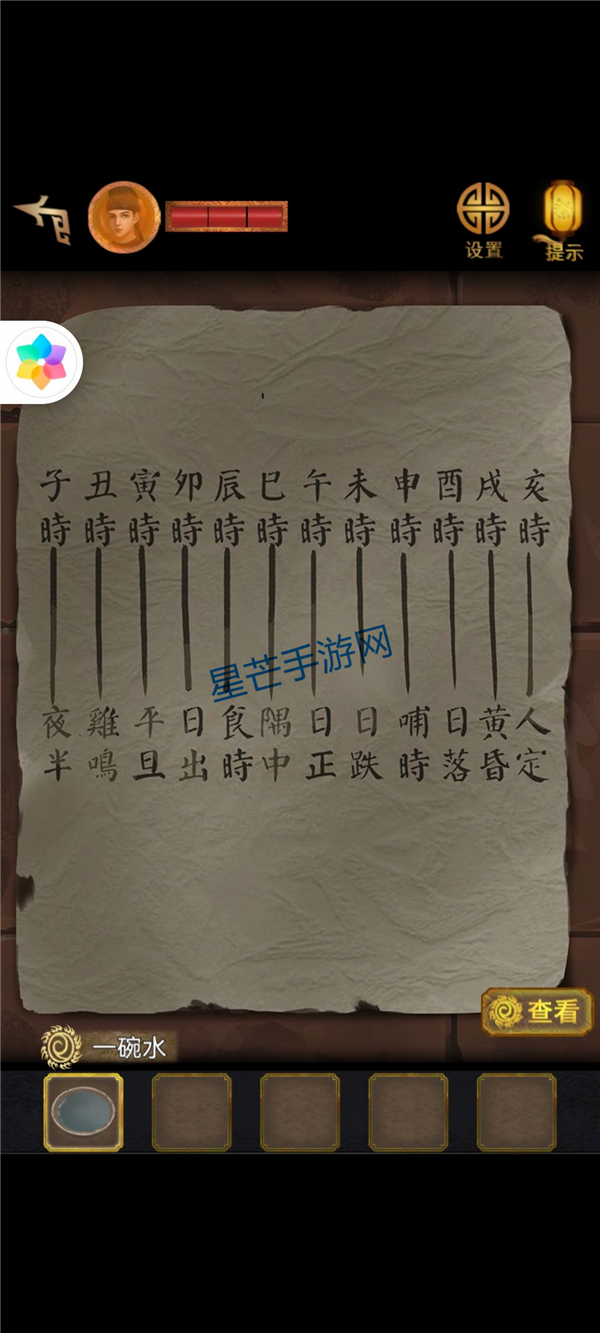 设置
提示
子 丑 寅 卯 辰 巳 午 未 申 酉 戌 亥
時 時 時 時 時 時 時 時 時 時 時 時
星芒手游网
夜 雞 平 日 食 隅 日 日 哺 日 黄 人
半 鳴 旦 出 時 中 正 跌 時 落 昏 定
查看
一碗水